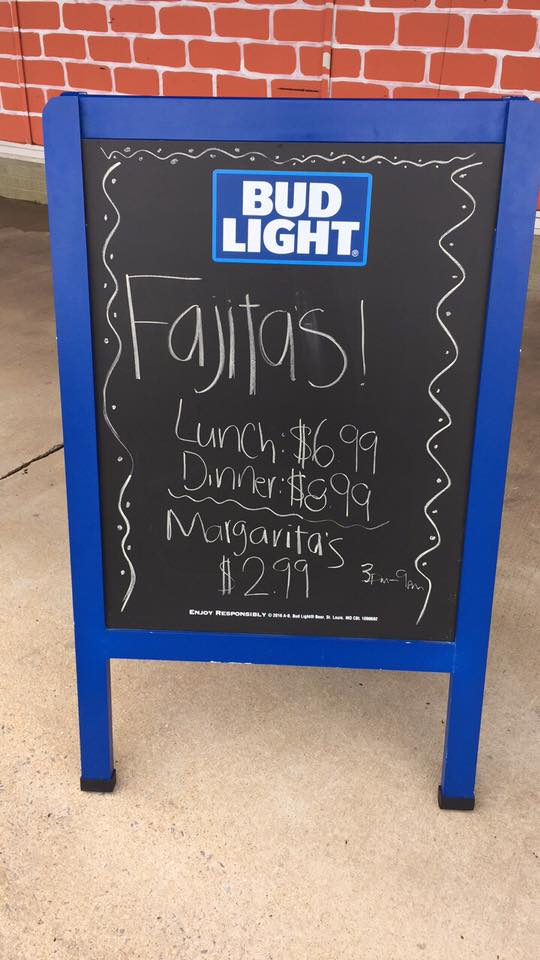 BUD
LIGHT®
Fajita's!
Lunch: $6.99
Dinner: $8.99
Margarita's
$2.99
3pm-9pm
ENJOY RESPONSIBLY © 2016 A-B. Bud Light® Beer, St. Louis, MO